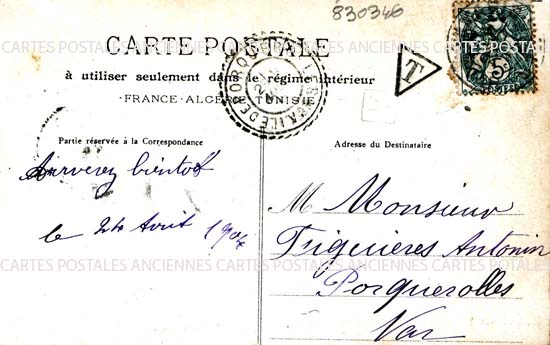 830346
CARTE POSTALE
à utiliser seulement dans le régime intérieur
FRANCE - ALGÉRIE - TUNISIE
T
5c
CARTES POSTALES ANCIENNES CARTES POSTALES ANCIENNES CARTES POSTALES ANCIENNES
Partie réservée à la Correspondance
Adresse du Destinataire
bientot
le 24 Août 1904
M Monsieur
Triguières Antonin
Porquerolles
Var
CARTES POSTALES ANCIENNES CARTES POSTALES ANCIENNES CARTES POSTALES ANCIENNES